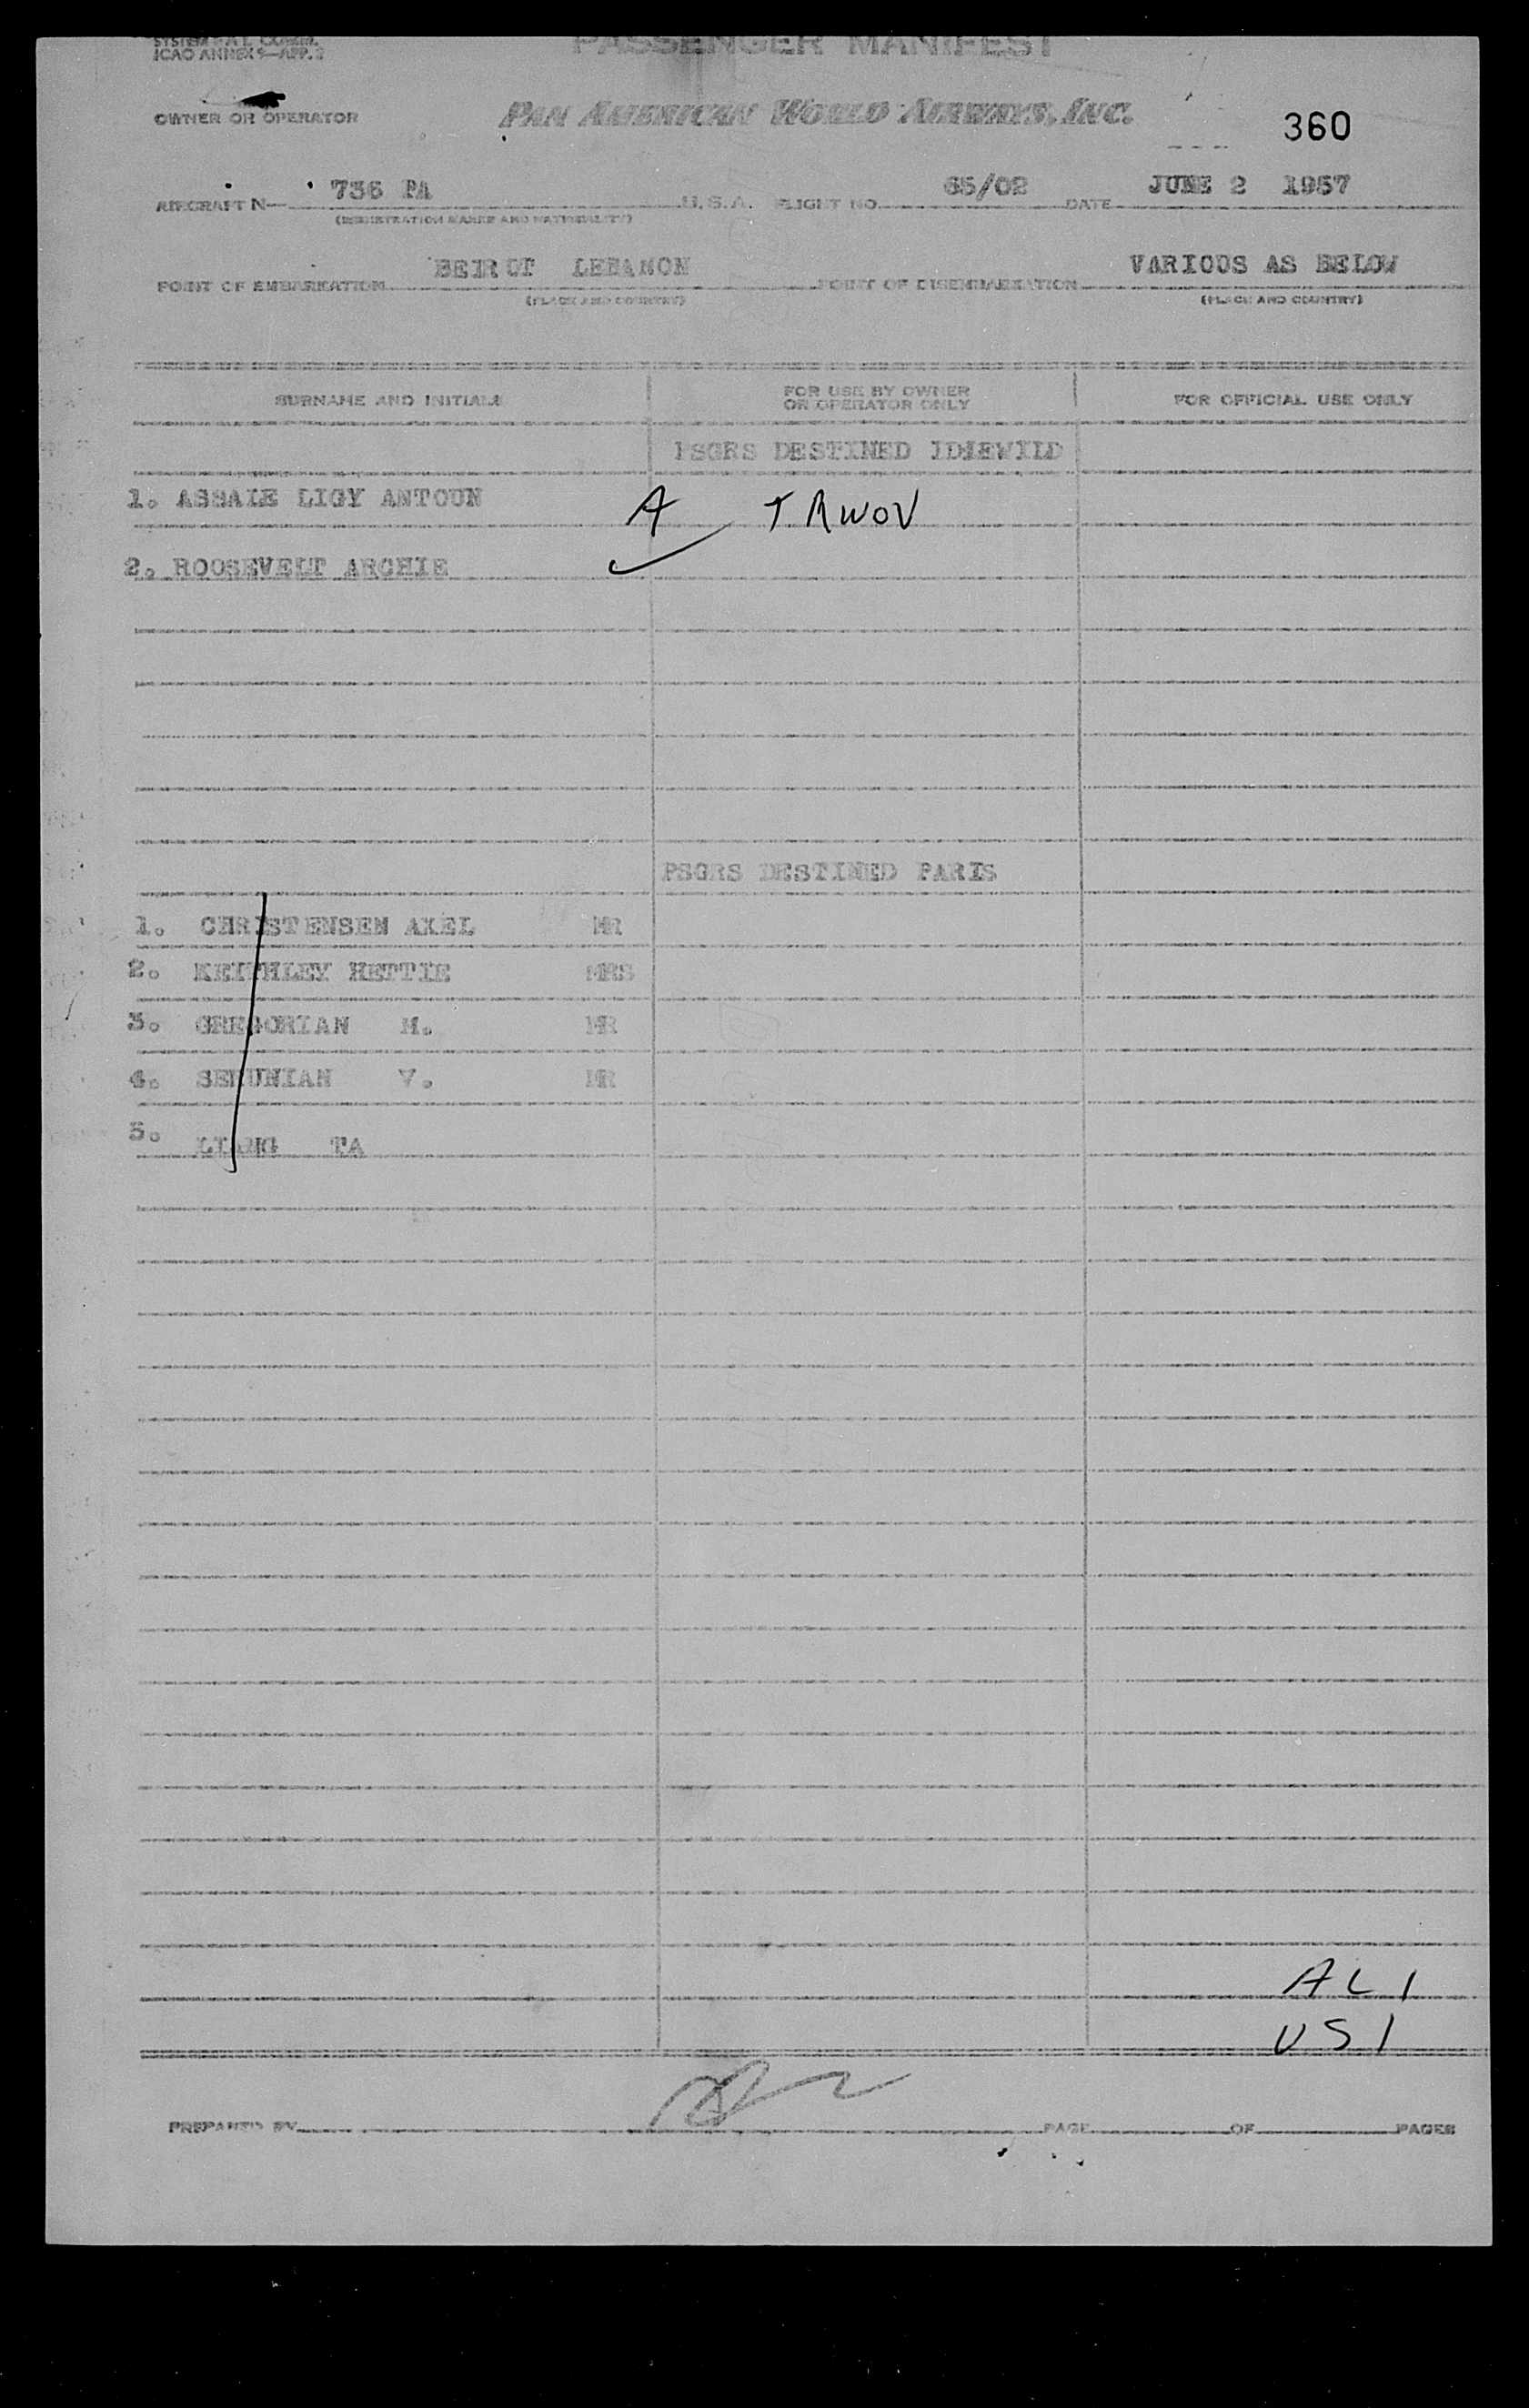 SYSTEM
ICAO ANNEX 9—APP. 2
PASSENGER MANIFEST
OWNER OR OPERATOR PAN AMERICAN WORLD AIRWAYS, INC.
360
AIRCRAFT N— 736 PA U.S.A. FLIGHT NO. 65/02 DATE JUNE 2 1957
(REGISTRATION MARKS AND NATIONALITY)
POINT OF EMBARKATION BEIRUT LEBANON POINT OF DISEMBARKATION VARIOUS AS BELOW
(PLACE AND COUNTRY) (PLACE AND COUNTRY)
SURNAME AND INITIALS FOR USE BY OWNER OR OPERATOR ONLY FOR OFFICIAL USE ONLY
PSGRS DESTINED IDLEWILD
1. ASSALE LIGY ANTOUN A TRWOV
2. ROOSEVELT ARCHIE
PSGRS DESTINED PARIS
1. CHRISTENSEN AXEL MR
2. KEITHLEY HETTIE MRS
3. GREGORIAN M. MR
4. V. MR
5. LIANG TA
AL 1
US 1
PREPARED BY PAGE OF PAGES